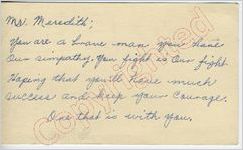 Mr. Meredith;
You are a brave man you have
Our sympathy. You fight is Our fight
Hoping that you'll have much
success and keep your courage.
One that is with you.
Copyrighted